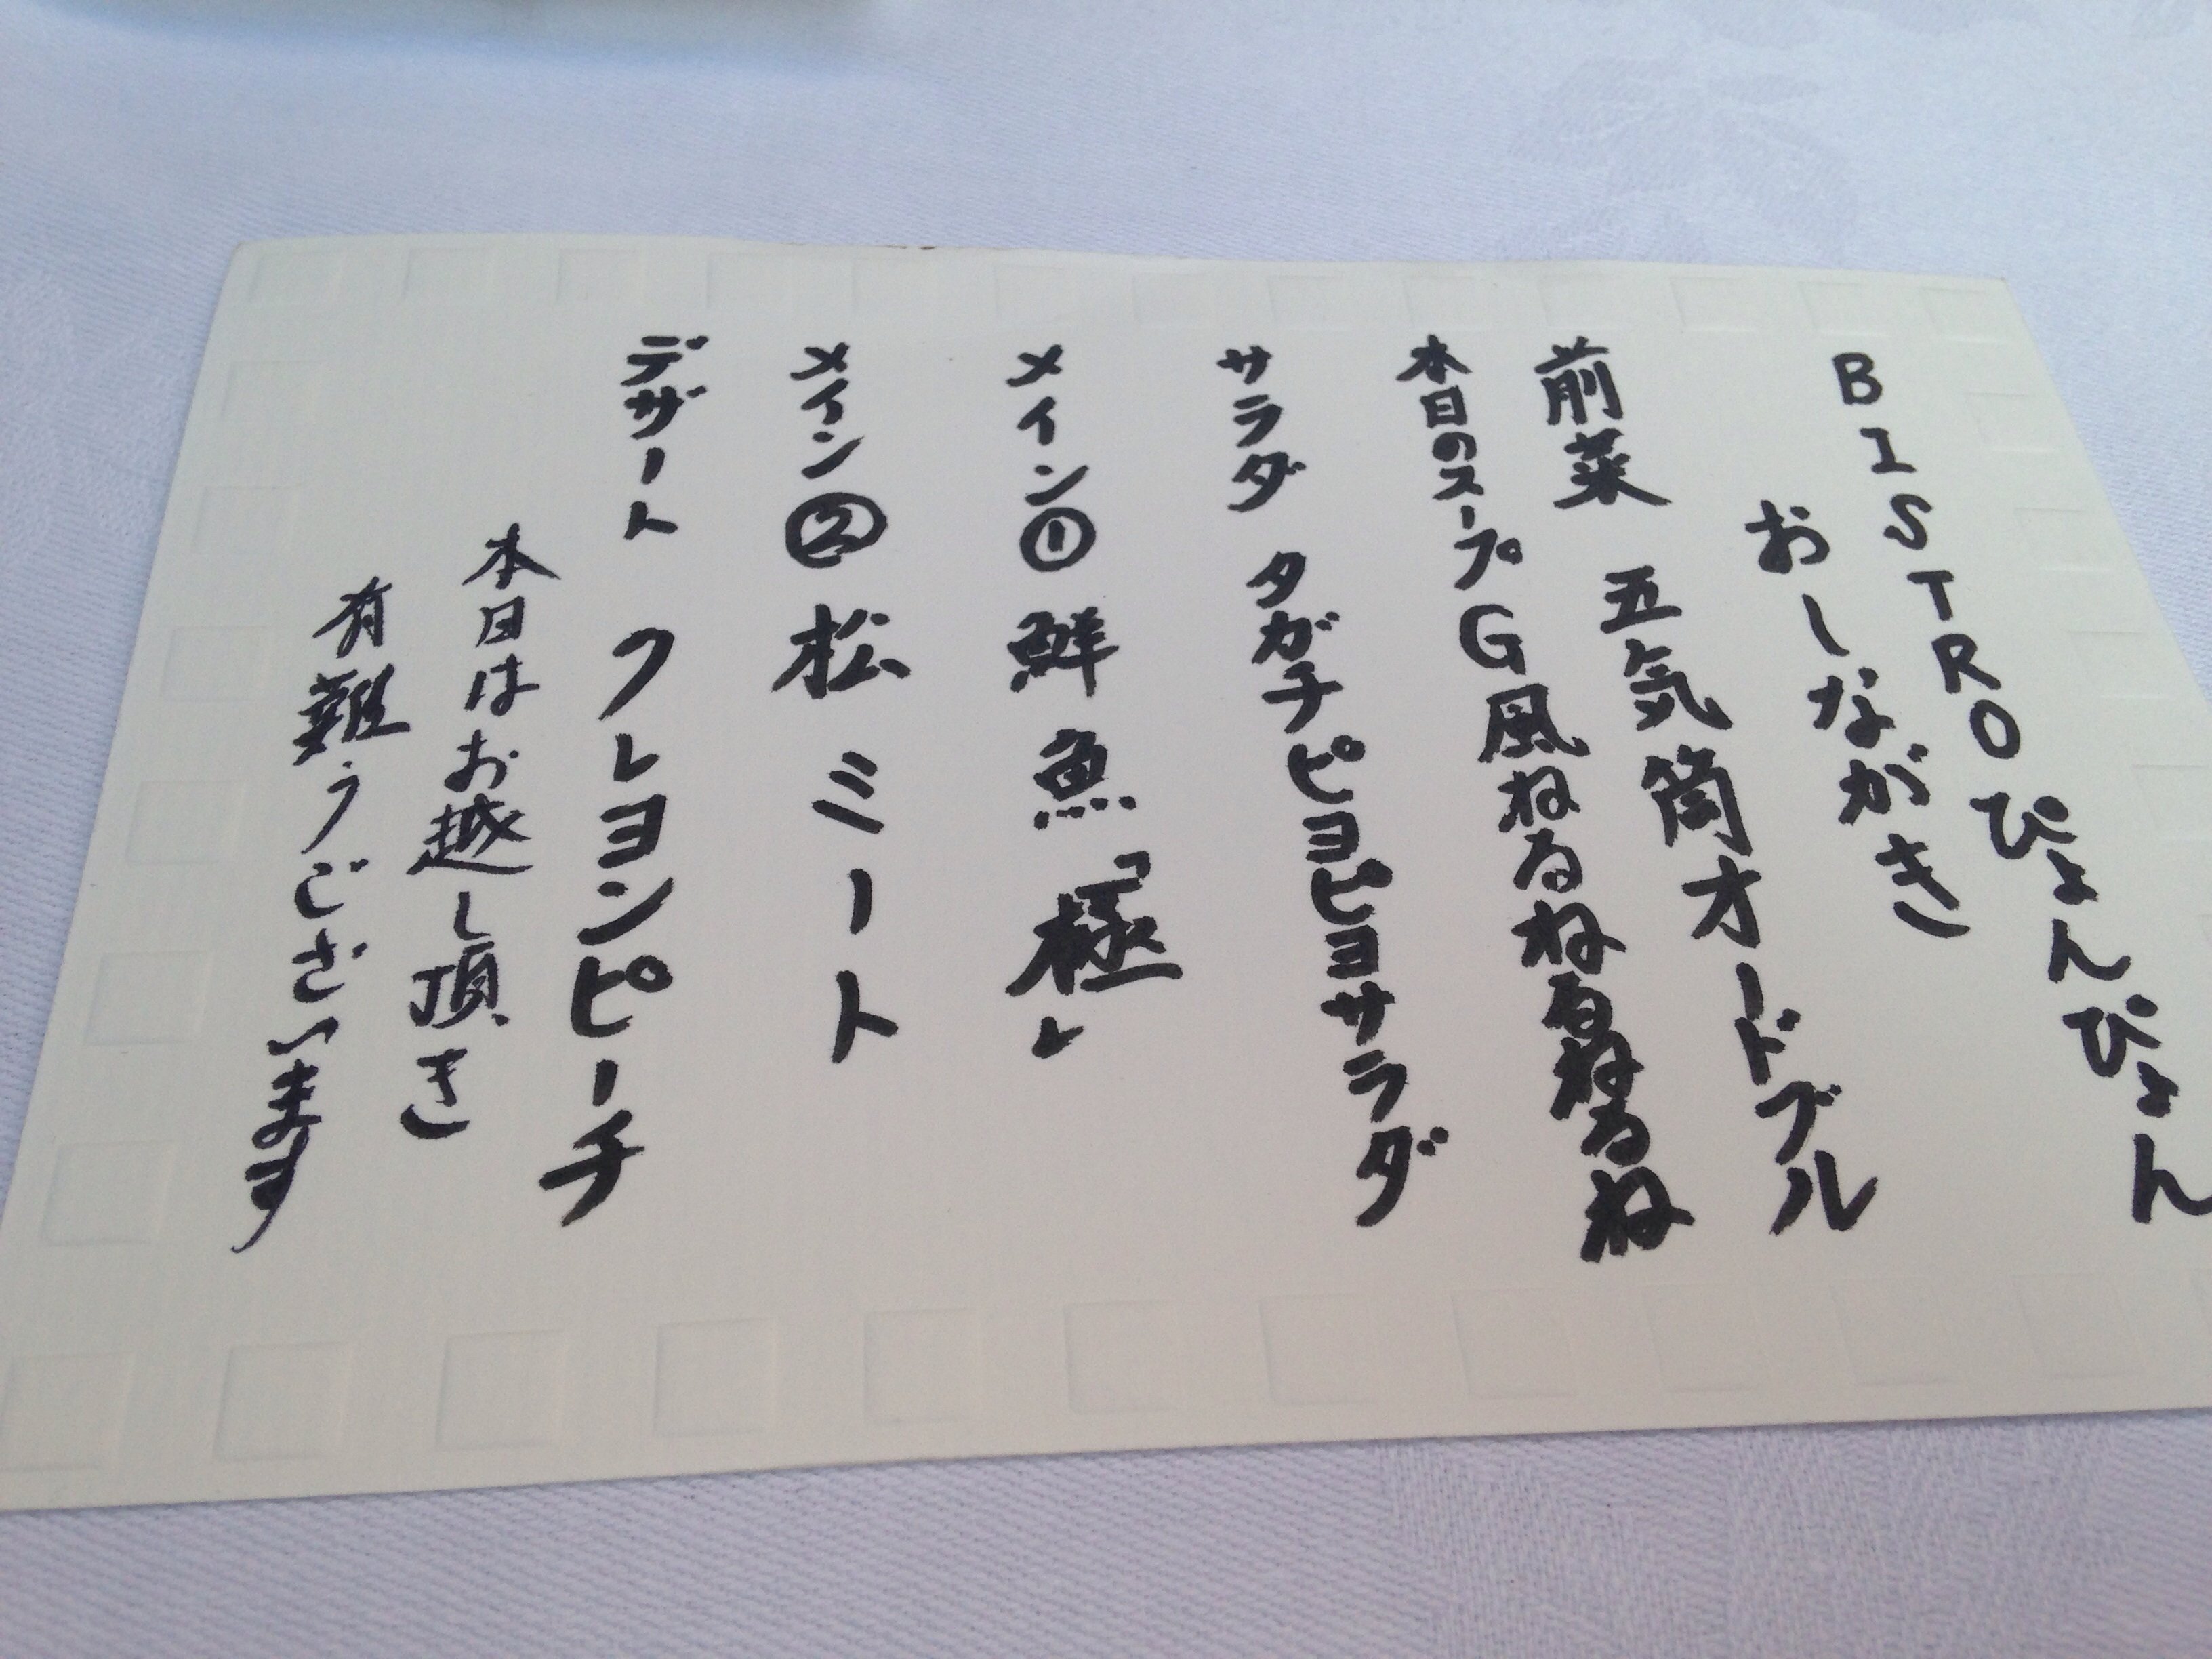 BISTROぴょんぴょん
おしながき
前菜 五気筒オードブル
本日のスープ G風ねるねるねるねるね
サラダ タガチピヨピヨサラダ
メイン① 鮮魚「極」
メイン② 松ミート
デザート クレヨンピーチ
本日はお越し頂き
有難うございます